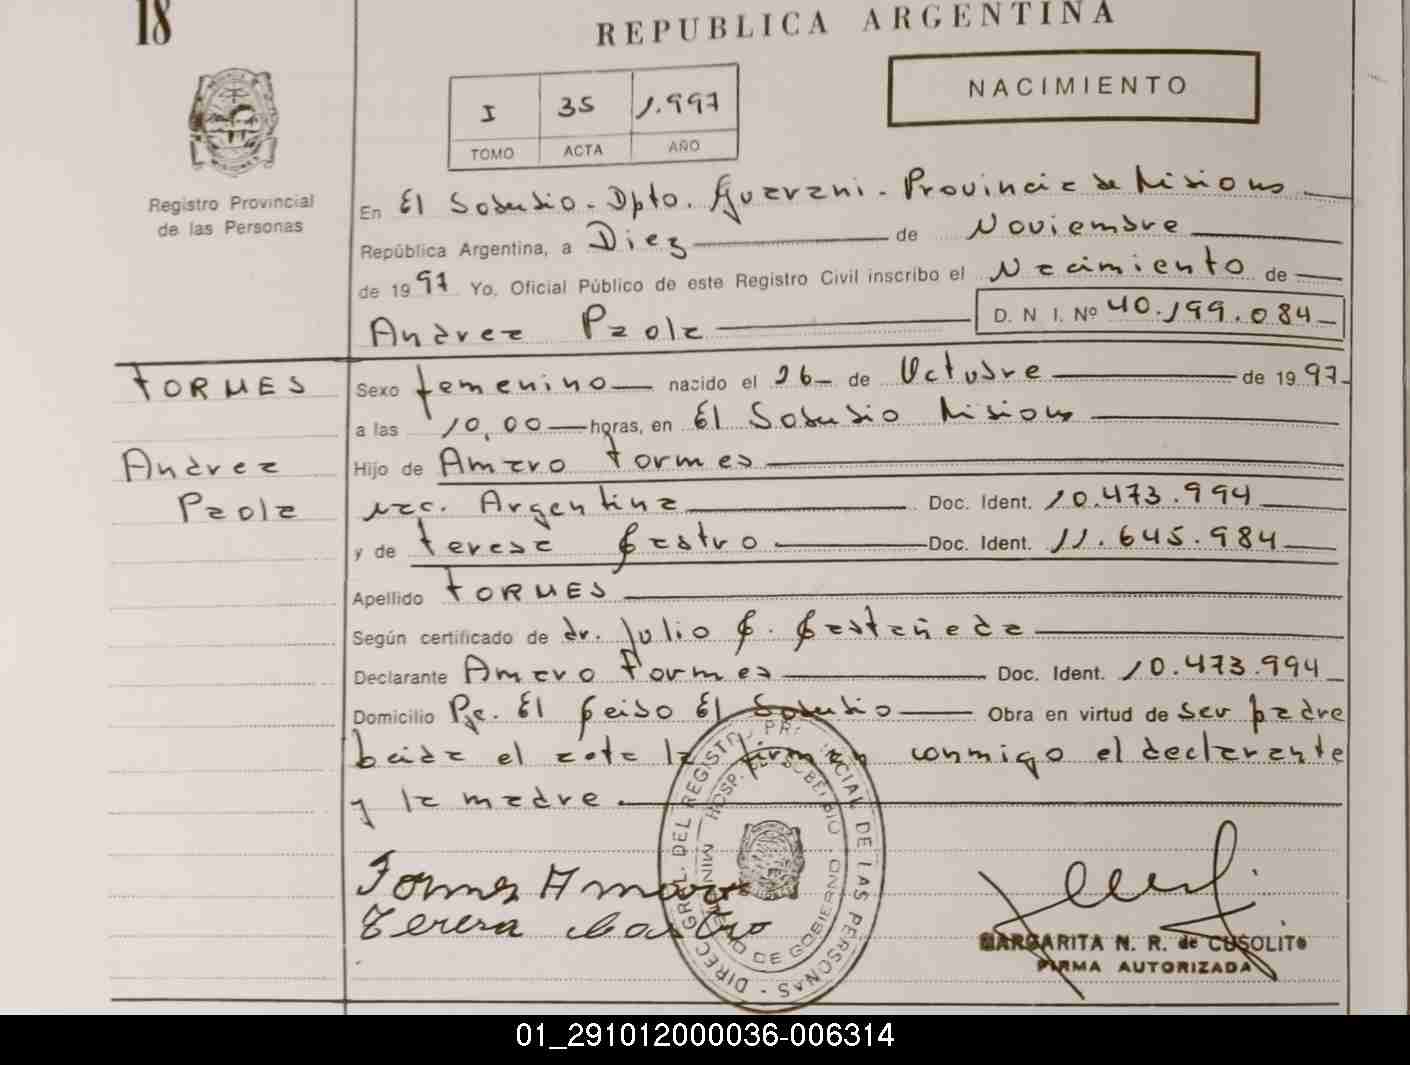 18
REPUBLICA ARGENTINA
NACIMIENTO
I 35 1.997
TOMO ACTA AÑO
Registro Provincial
de las Personas
En El Soberbio - Dpto. Guarani - Provincia de Misiones
República Argentina, a Diez de Noviembre
de 1997 Yo, Oficial Público de este Registro Civil inscribo el Nacimiento de
Andrea Paola D. N. I. Nº 40.199.084
TORMES
Andrea
Paola
Sexo femenino nacido el 26 de Octubre de 1997
a las 10,00 horas, en El Soberbio Misiones
Hijo de Amaro Tormes
nac. Argentina Doc. Ident. 10.473.994
y de Teresa Castro Doc. Ident. 11.645.984
Apellido TORMES
Según certificado de dr. Julio C. Castañeda
Declarante Amaro Tormes Doc. Ident. 10.473.994
Domicilio Pje. El Ceibo El Soberbio Obra en virtud de ser padre
leida el acta la firman conmigo el declarante
y la madre
Tormes Amaro
Teresa Castro
DIREC. GRAL. DEL REGISTRO PROVINCIAL DE LAS PERSONAS
HOSP. DE SOBERBIO
MINISTERIO DE GOBIERNO
MARGARITA N. R. de CUSOLITO
FIRMA AUTORIZADA
01_291012000036-006314